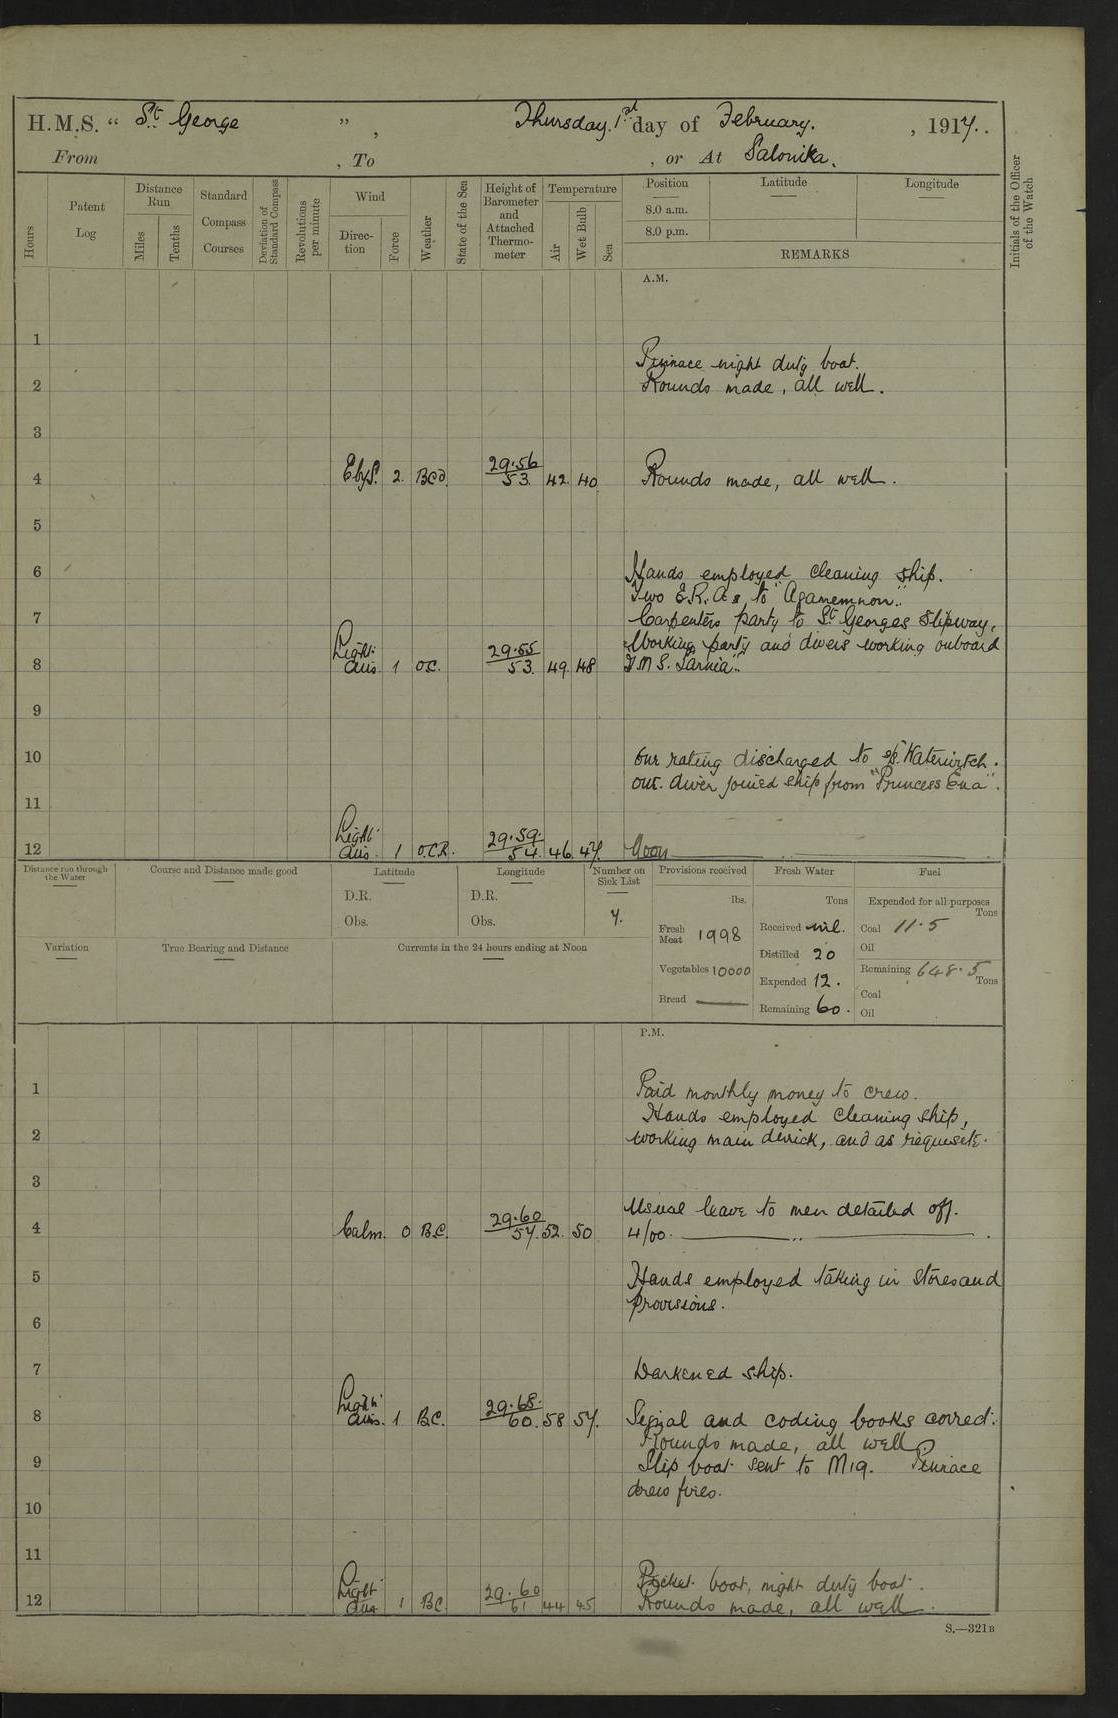 H.M.S. “ St. George ” , Thursday. 1st day of February. , 1917.
From , To , or At Salonika.
Hours
Patent Log
Distance Run
Miles
Tenths
Standard Compass Courses
Deviation of Standard Compass
Revolutions per minute
Wind
Direction
Force
Weather
State of the Sea
Height of Barometer and Attached Thermometer
Temperature
Air
Wet Bulb
Sea
Position
Latitude
Longitude
8.0 a.m.
8.0 p.m.
REMARKS
Initials of the Officer of the Watch
A.M.
1
Pinnace night duty boat.
2 Rounds made, all well.
3
4 E by S. 2. BCD. 29.56 53. 42. 40 Rounds made, all well.
5
6 Hands employed cleaning ship.
Two E.R.As to "Agamemnon".
7 Carpenters party to St. Georges Slipway.
Working party and divers working onboard
8 Light airs. 1 OC. 29.55 53. 49. 48 "Sarnia".
9
10 One rating discharged to Waterwitch.
One diver joined ship from "Princess Ena".
11
12 Light airs. 1 O.C.R. 29.59. 54. 46. 47. Noon
Distance run through the Water
Course and Distance made good
Latitude
D.R.
Obs.
Longitude
D.R.
Obs.
Number on Sick List
7.
Provisions received
lbs.
Fresh Meat 1998
Vegetables 10000
Bread
Fresh Water
Tons
Received nil.
Distilled 20
Expended 12.
Remaining 60.
Fuel
Expended for all purposes
Tons
Coal 11.5
Oil
Remaining 648.5
Tons
Coal
Oil
Variation
True Bearing and Distance
Currents in the 24 hours ending at Noon
P.M.
1 Paid monthly money to crew.
Hands employed cleaning ship,
2 working main derrick, and as requisite.
3
Usual leave to men detailed off.
4 Calm. 0 B.C. 29.60 57. 52. 50 4/00. ,,
5 Hands employed taking in stores and
provisions.
6
7 Darkened ship.
8 Light airs. 1 BC. 29.68. 60. 58 57. Signal and coding books corred.
Rounds made, all well.
9 Slip boat sent to M19. Pinnace
drew fires.
10
11
Picket boat, night duty boat.
12 Light airs 1 BC. 29.60 61 44 45 Rounds made, all well.
S.—321B